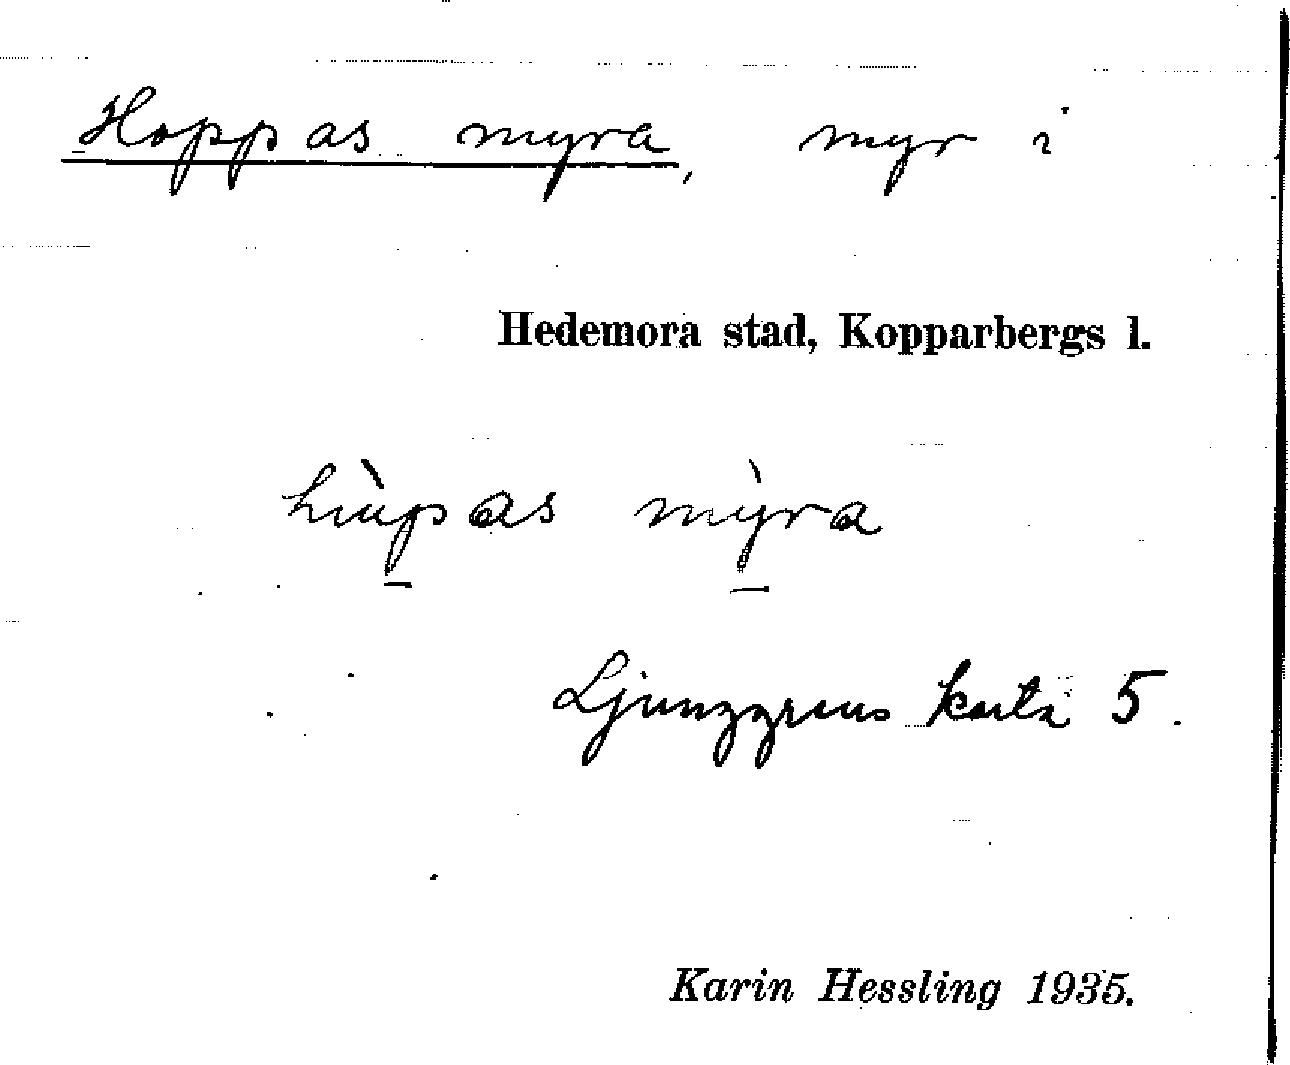 Hoppas myra, myr i
Hedemora stad, Kopparbergs l.
hùp̱as mỳ̱ra
Ljunggrens karta 5.
Karin Hessling 1935.